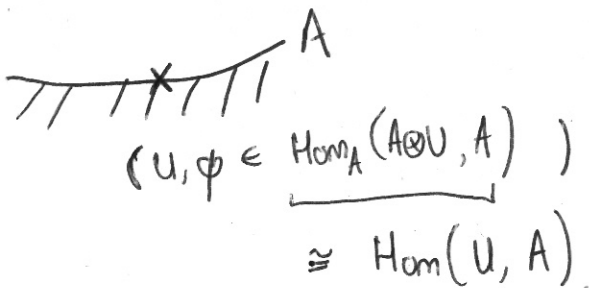 A
(U, φ ∈ Hom_A (A⊗U, A) )
≅ Hom(U, A).